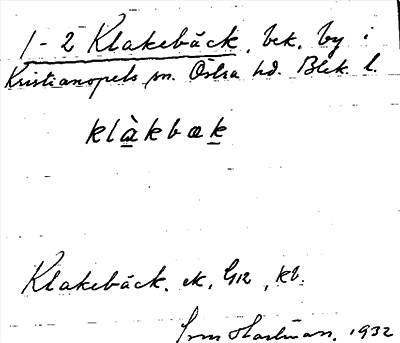 1-2 Klakebäck, bek. by i
Kristianopels sn. Östra hd. Blek. l.
klàkbæk
Klakebäck. ek, G12, kb.
Hartman. 1932